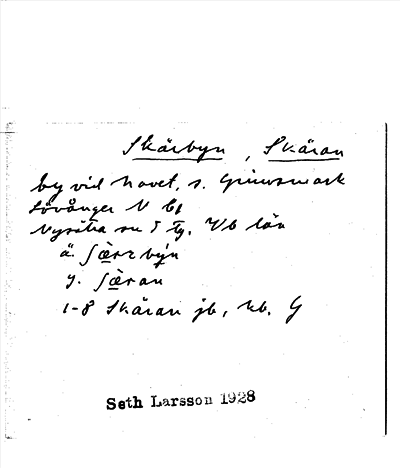 Skärbyn, Skäran
by vid havet, s. Grimsmark
Lövånger N bl
Nysätra sn 5 tg. Vb län
ä. ʃæ̀rzbýn
y. ʃæ̀ran
1-8 Skäran jb, kb. G
Seth Larsson 1928